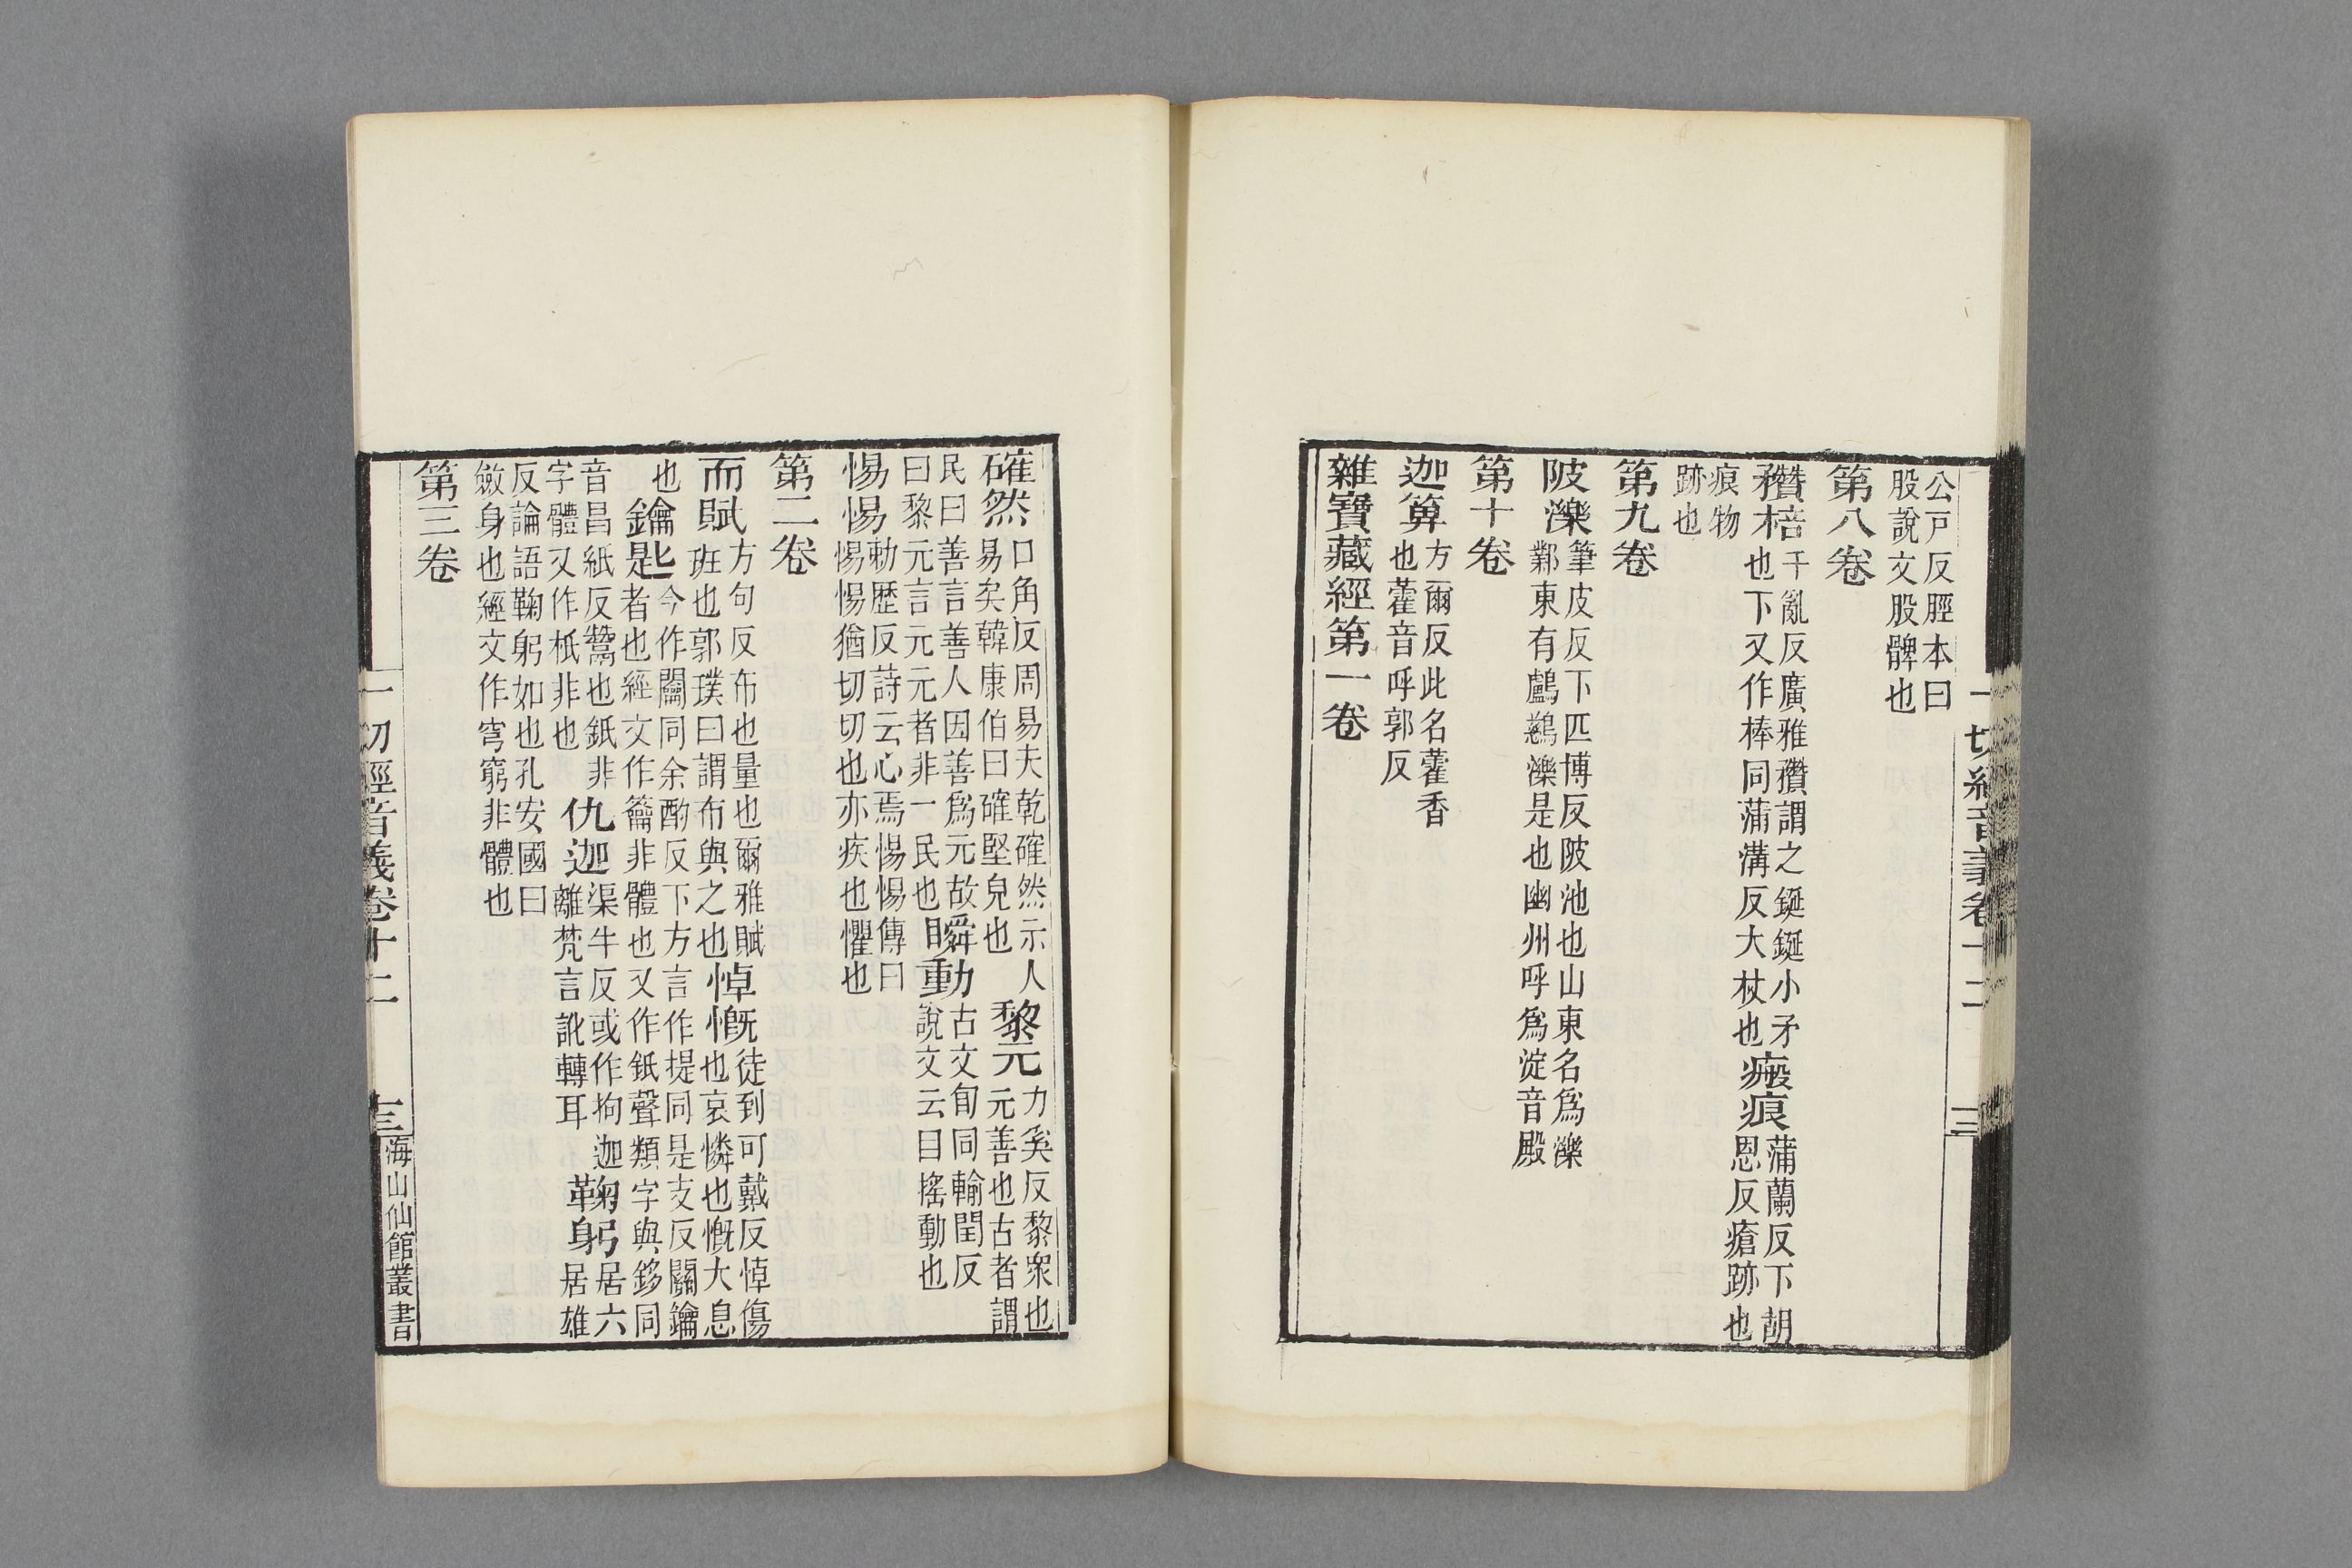 公戸反脛本曰
股說文股髀也
第八卷
穳棓干亂反廣雅穳謂之鋋鋋小矛
也下又作棒同蒲溝反大杖也瘢痕蒲蘭反下胡
恩反瘡跡也
痕物
跡也
第九卷
陂濼筆皮反下匹博反陂池也山東名爲濼
鄴東有鸕鷀濼是也幽州呼爲淀音殿
第十卷
迦箄方爾反此名藿香
也藿音呼郭反
雜寶藏經第一卷
一切經音義卷十二
三
確然口角反周易夫乾確然示人
易矣韓康伯曰確堅皃也
黎元力奚反黎衆也
元善也古者謂
民曰善言善人因善爲元故
曰黎元言元元者非一民也
瞬動古文旬同輸閏反
說文云目搖動也
惕惕勅歷反詩云心焉惕惕傳曰
惕惕猶切切也亦疾也懼也
第二卷
而賦方句反布也量也爾雅賦
班也郭璞曰謂布與之也
悼慨徒到可戴反悼傷
也哀憐也慨大息
也
鑰匙今作闟同余酌反下方言作提同是支反關鑰
者也經文作籥非體也又作䤥聲類字與䤭同
音昌紙反鷔也䤥非
字體又作柢非也
仇迦渠牛反或作拘迦
離梵言訛轉耳
鞠躬居六
居雄
反論語鞠躬如也孔安國曰
斂身也經文作穹窮非體也
第三卷
一切經音義卷十二
三
海山仙館叢書